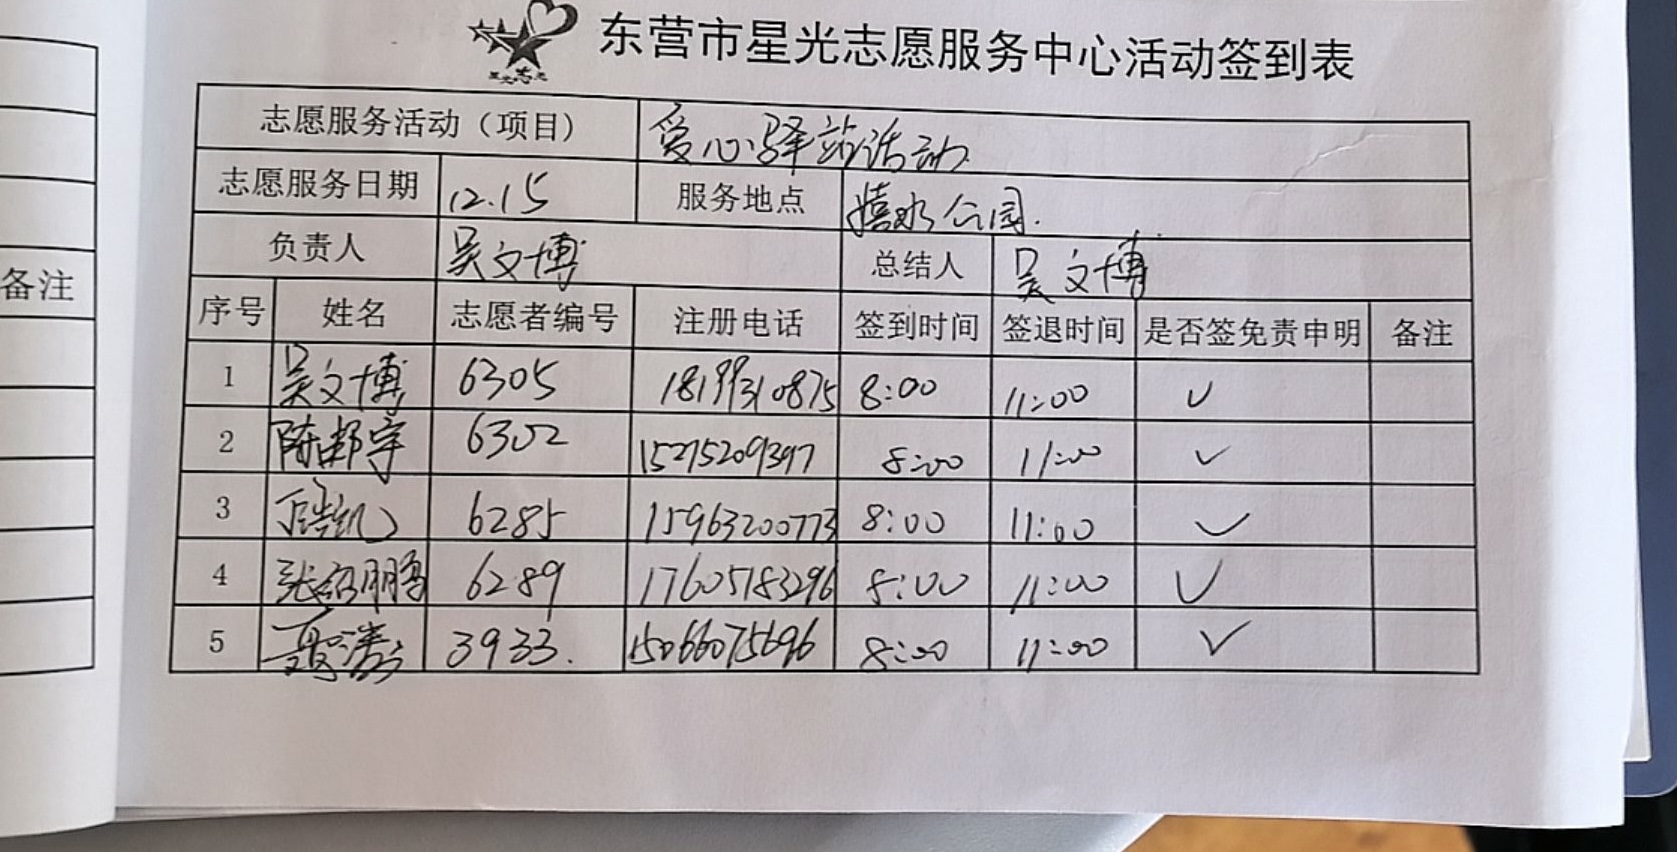 东营市星光志愿服务中心活动签到表
星光志愿
志愿服务活动（项目） 爱心驿站活动
志愿服务日期 12.15 服务地点 嬉水公园.
负责人 吴文博 总结人 吴文博
备注
序号 姓名 志愿者编号 注册电话 签到时间 签退时间 是否签免责申明 备注
1 吴文博 6305 8:00 11:00 ✓
2 陈邦宇 6302 15275209397 8:00 11:00 ✓
3 6285 15963200773 8:00 11:00 ✓
4 张绍鹏 6289 17605183296 8:00 11:00 ✓
5 3933. 15066075696 8:00 11:00 ✓